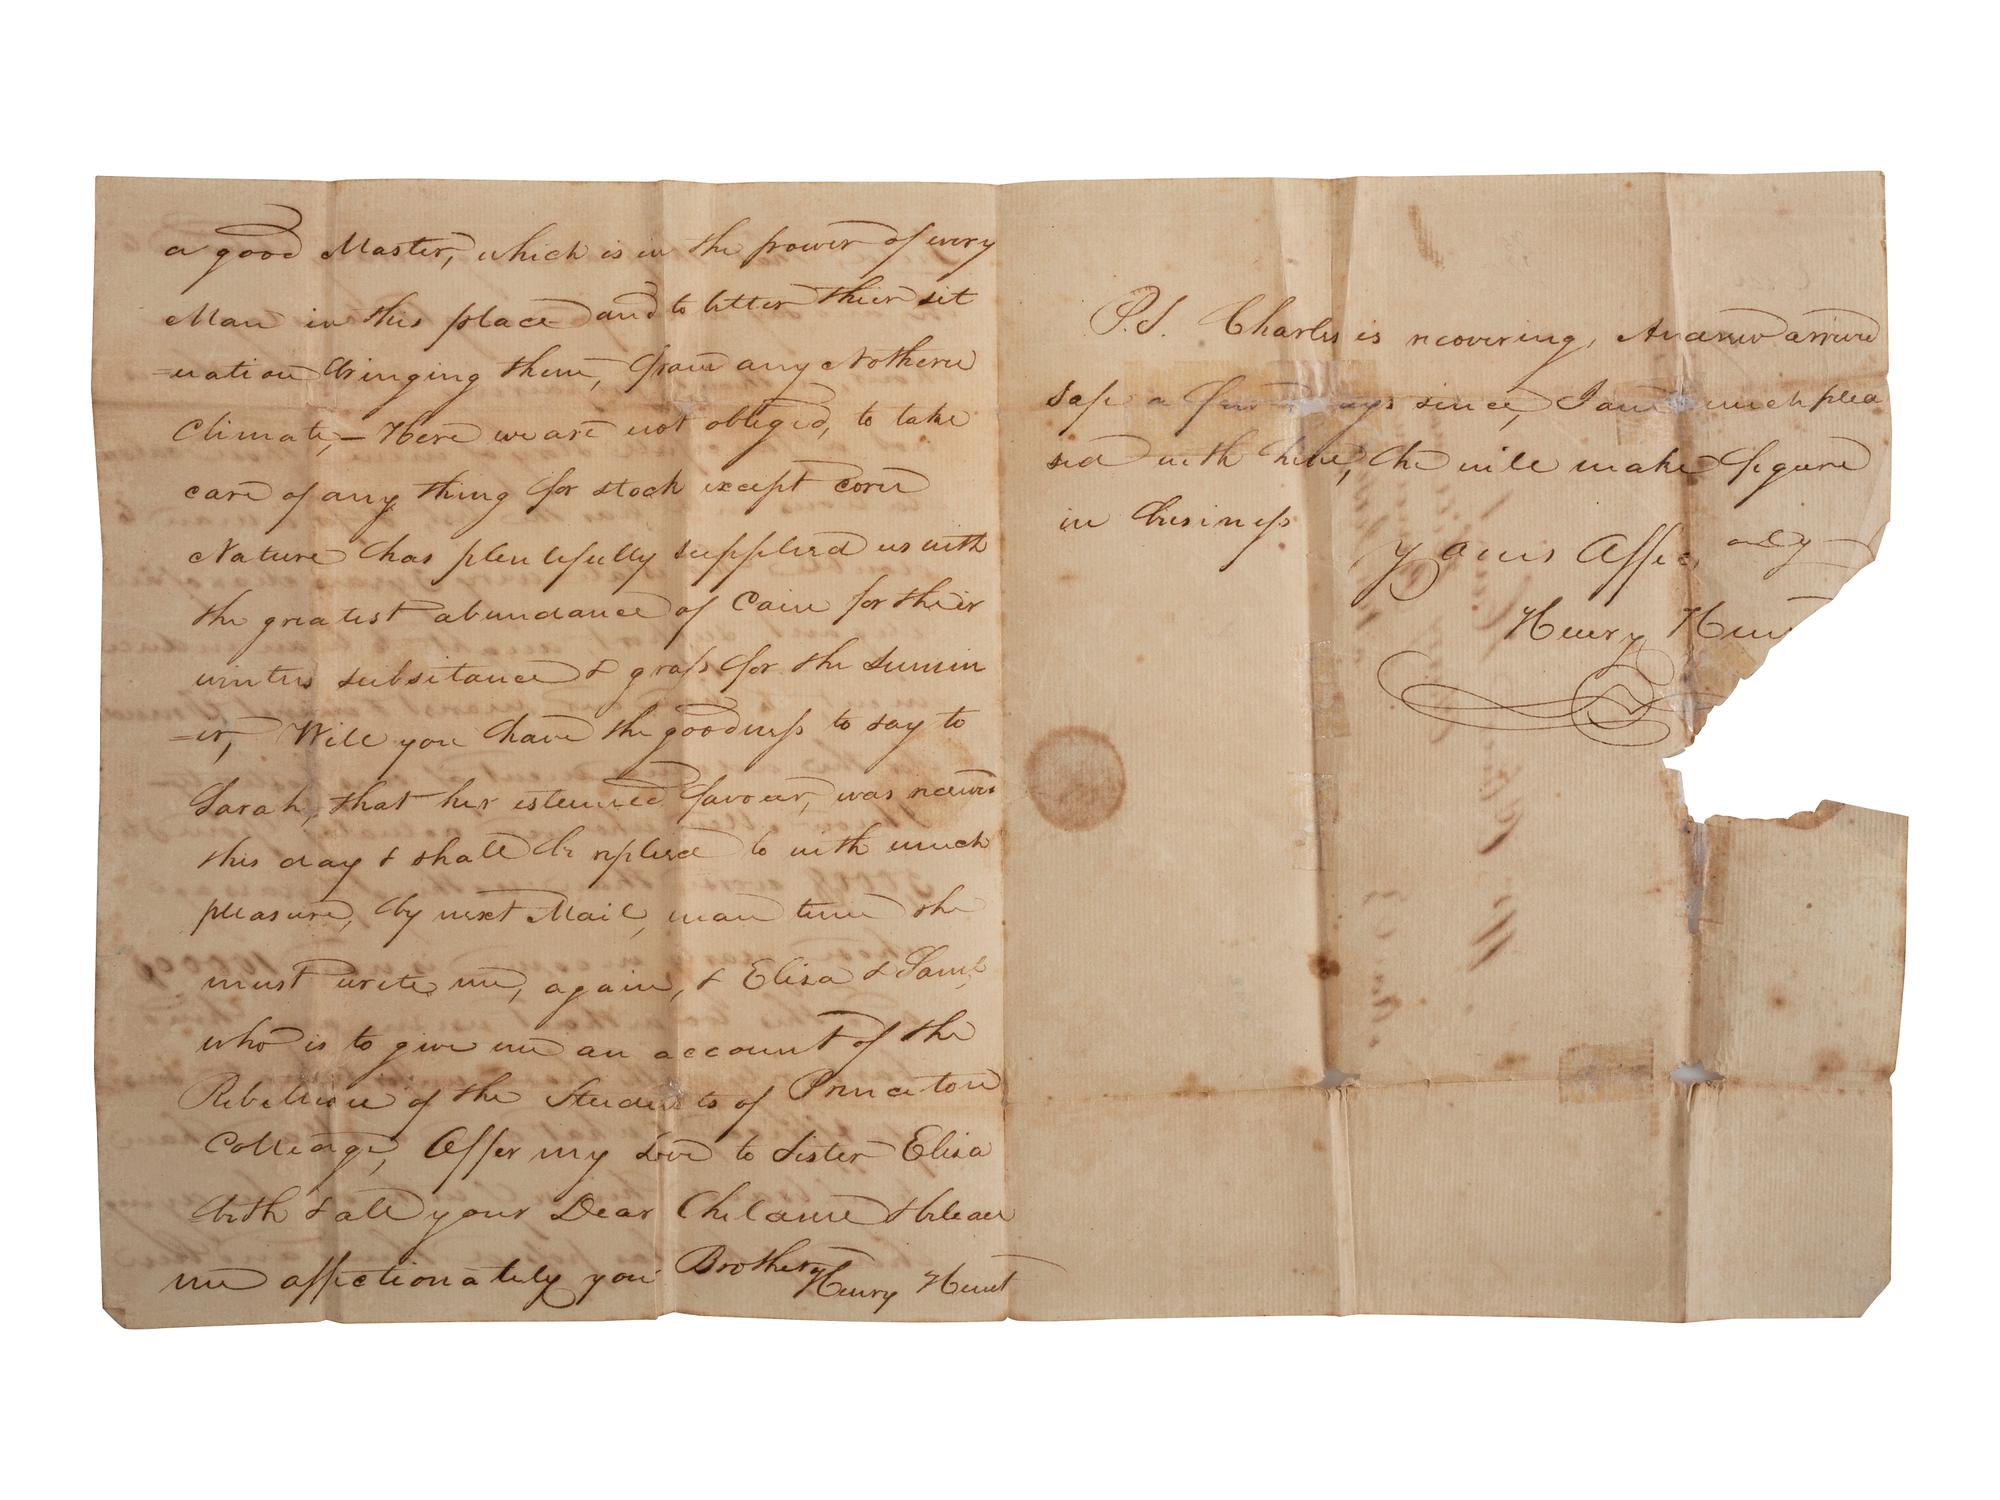 a good Master, which is in the power of every
Man in this place and to better thier sit
=uation bringing them, from any Nothern
Climate,— Here we are not obliged, to take
care of any thing for stock except corn
Nature has plentifully supplied us with
the greatest abundance of Cain for their
winters subsitance & grass for the summ
=er, Will you have the goodness to say to
Sarah, that her esteemed favour, was receivd
this day & shall be replied to with much
pleasure, by next Mail, mean time she
must write me, again, & Eliza & Saml,
who is to give me an account of the
Rebellion of the Students of Princeton
Colleage, Offer my Love to Sister Eliza
beth & all your Dear Children & beleave
me affectionately your Brother
Henry Hunt
P.S. Charles is recovering, Andrew arrived
safe a few days since, I am much plea
sed with him, he will make figure
in business
Yours Affec ately
Henry Hun